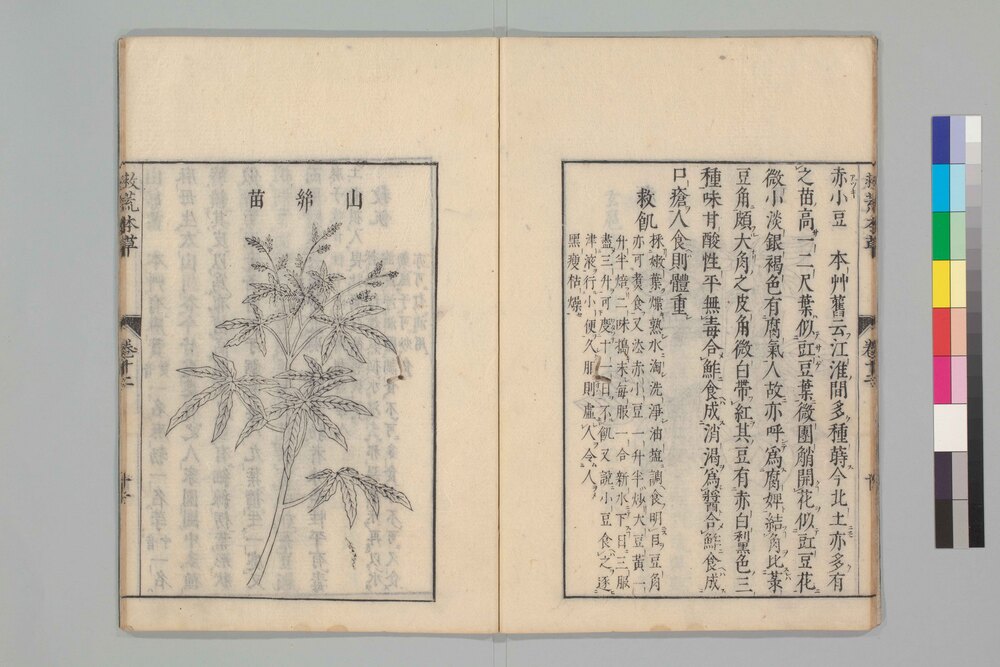 赤小豆　本艸舊云江淮間多種蒔今北土亦多有
之苗高一二尺葉似豇豆葉微團艄開花似豇豆花
微小淡銀褐色有腐氣人故亦呼爲腐婢結角比菉
豆角頗大角之皮角微白帶紅其豆有赤白黧色三
種味甘酸性平無毒合鮓食成消渴爲醬合鮓食成
口瘡人食則體重
救飢
採嫩葉煠熟水淘洗淨油塩調食明目豆角
亦可煮食又法赤小豆一升半炒大豆黃一
升半焙二味搗末每服一合新水下日三服
盡三升可度十一日不飢又說小豆食之逐
津液行小便久服則虛人令人
黑瘦枯燥
救荒本草
卷十二
山絲苗
救荒本草
卷十二